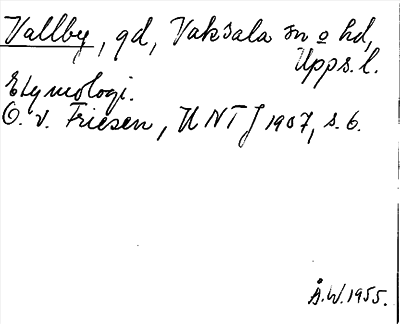 Vallby, gd, Vaksala sn o hd,
Upps. l.
Etymologi.
O. v. Friesen, UNTJ 1907, s. 6.
Å.W. 1955.